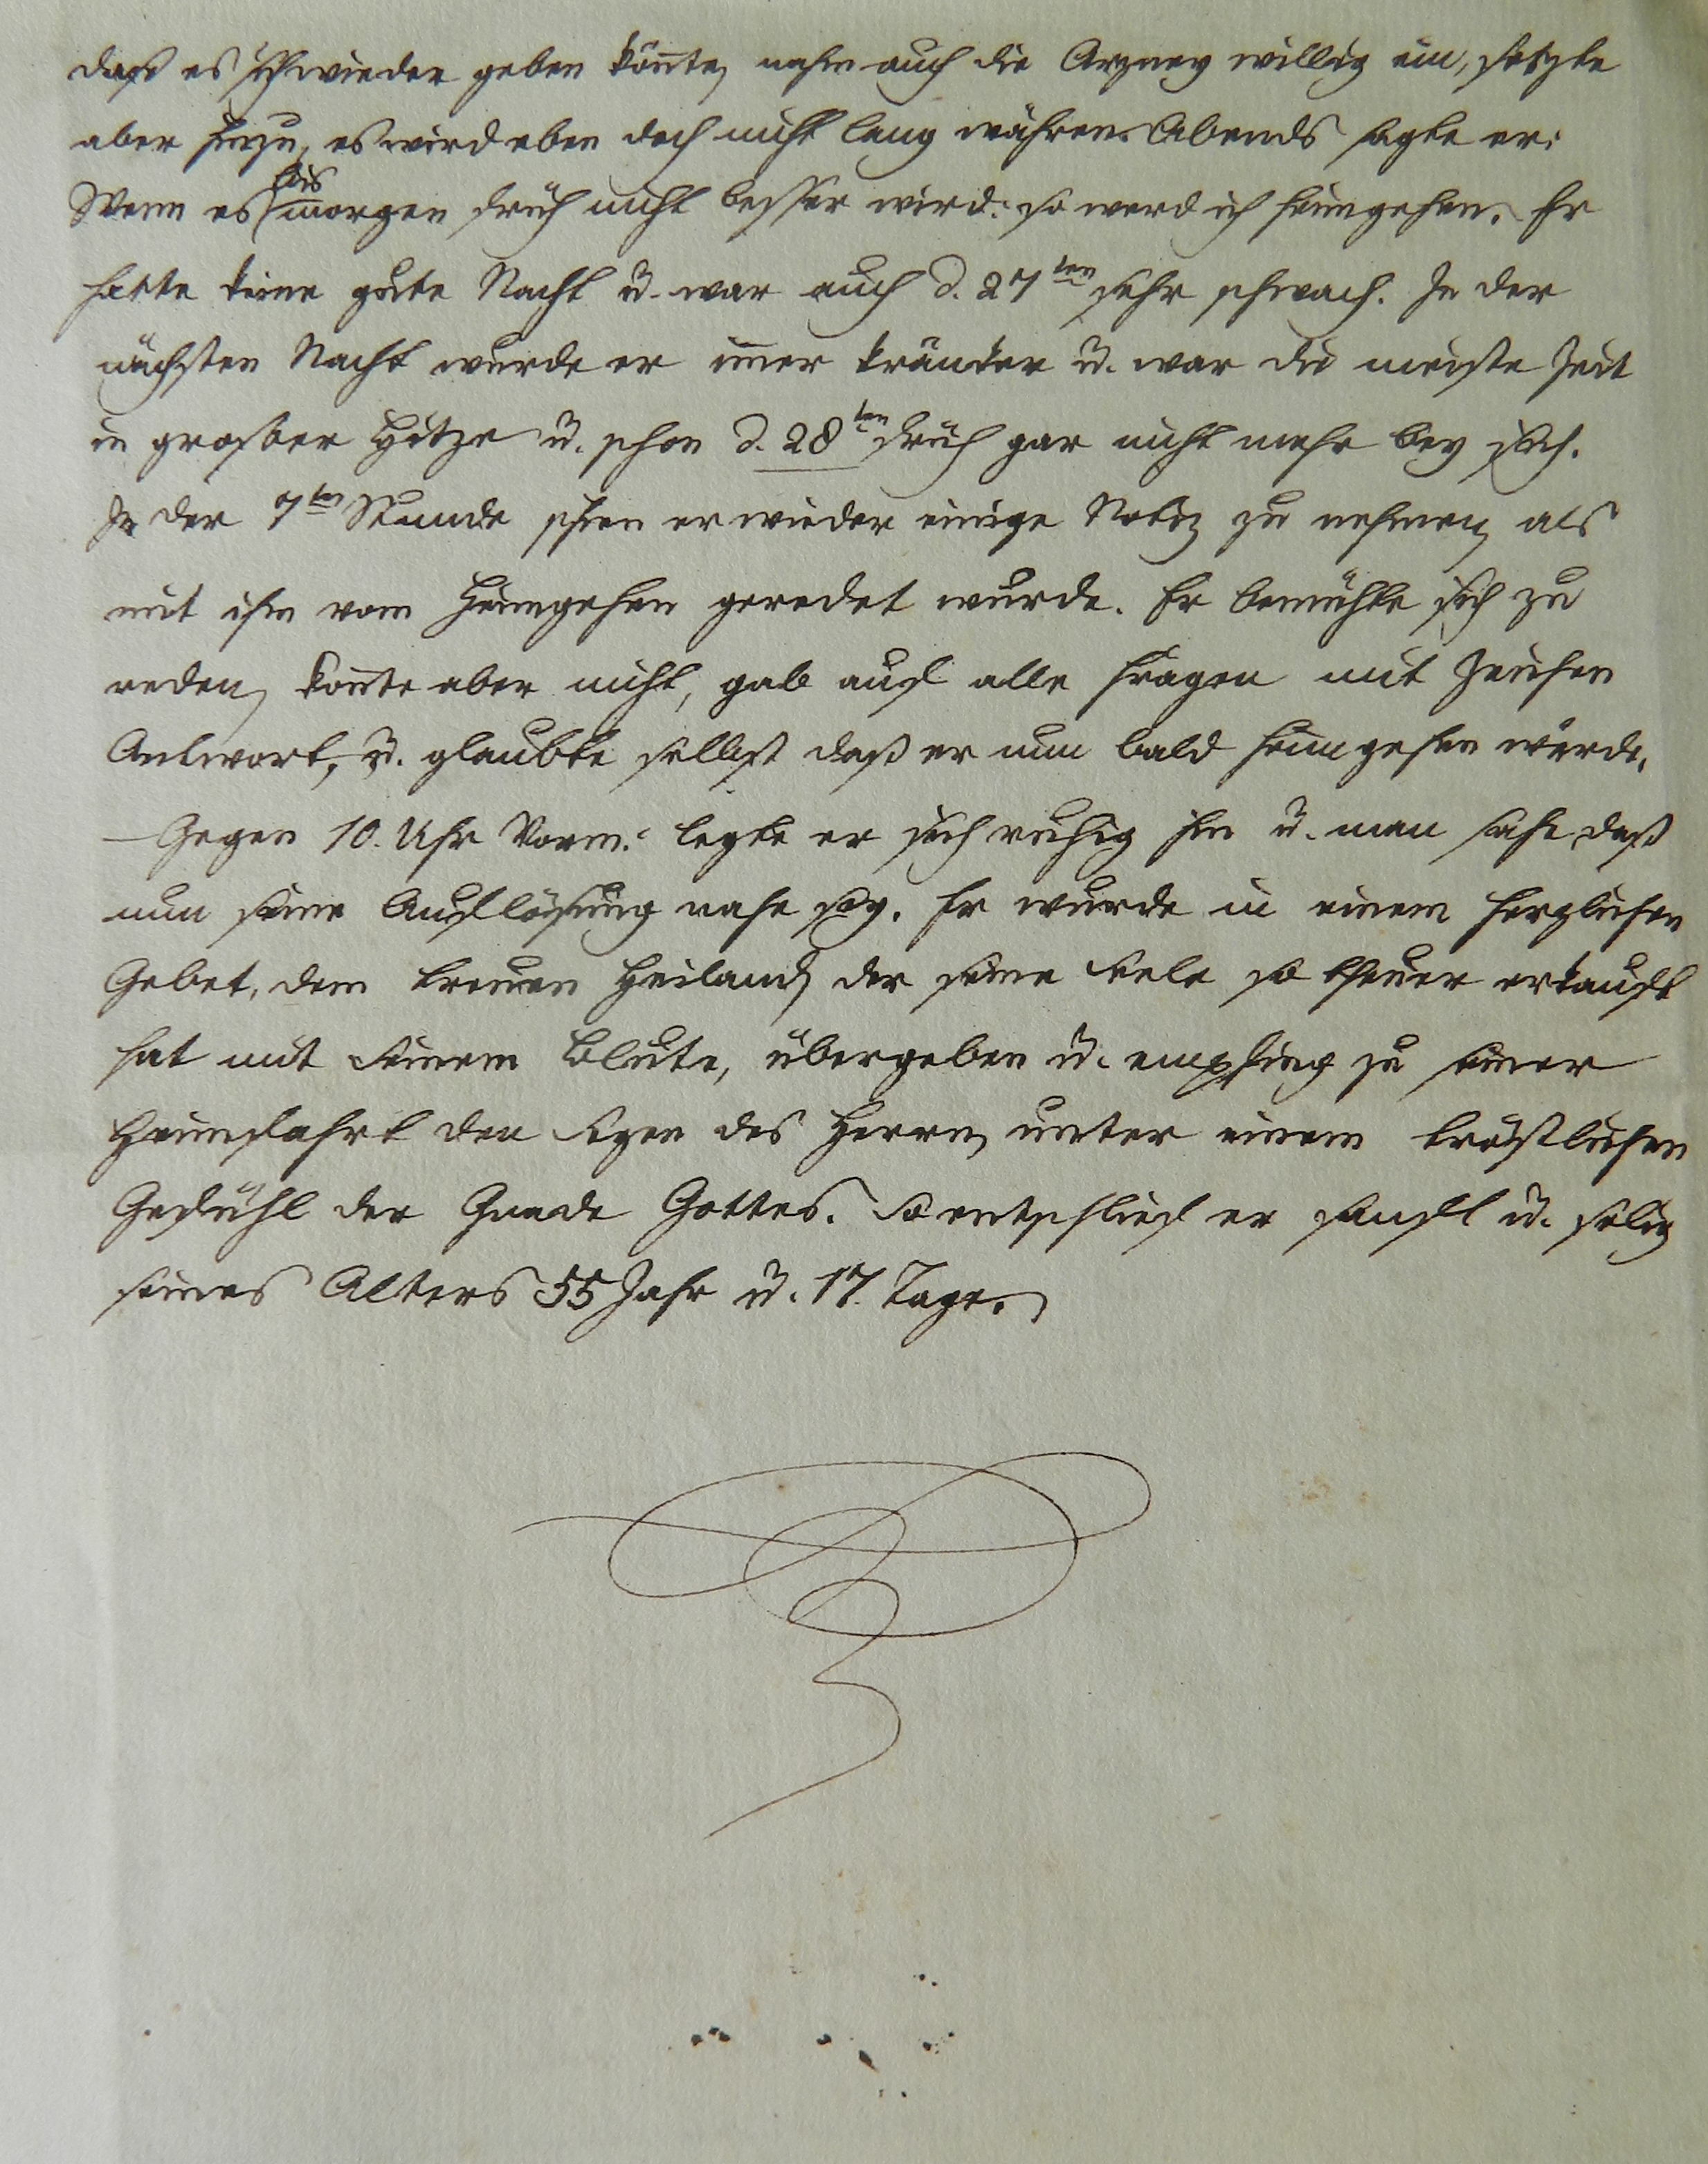 daß es sich wieder geben kön̄te, nahm auch die Arzney willig ein, setzte
aber hinzu, es wird eben doch nicht lang währen. Abends sagte er:
Wenn es bis morgen früh nicht besser wird: so werd ich heimgehen. Er
hatte keine gute Nacht u. war auch d. 27ten sehr schwach. In der
nächsten Nacht wurde er im̄er kränker u. war die meiste Zeit
in großer Hitze u. schon d. 28ten früh gar nicht mehr bey sich.
In der 7ten Stunde schien er wieder einige Notiz zu nehmen, als
mit ihm vom Heimgehen geredet wurde. Er bemühte sich zu
reden, kon̄te aber nicht, gab auf alle Fragen mit Zeichen
Antwort, u. glaubte selbst daß er nun bald heimgehen würde.
—Gegen 10. Uhr Vorm: legte er sich ruhig hin u. man sahe, daß
nun seine Auflösung nahe sey. Er wurde in einem herzlichen
Gebet, dem treuen Heiland, der seine Sele so theuer erkauft
hat mit Seinem Blute, übergeben u. empfing zu seiner
Heimfahrt den Segen des Herrn, unter einem tröstlichen
Gefühl der Gnade Gottes. So entschlief er sanft u. selig
seines Alters 55 Jahr u. 17. Tage.